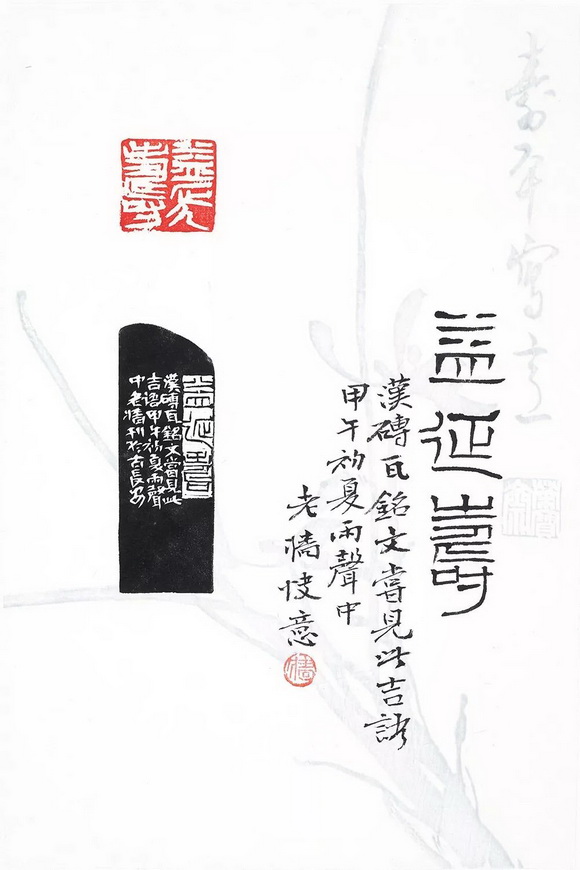 益延壽
漢磚瓦銘文嘗見此吉語
甲午初夏雨聲中
老墻快意
墻
益延壽
益延壽
漢磚瓦銘文嘗見此
吉語甲午初夏雨聲
中老墻刊於古長安
壽平寫意